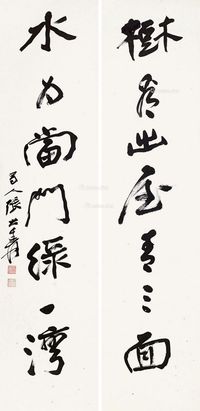 樹出屋青三面
水为當門綠一灣
蜀人張大千爰